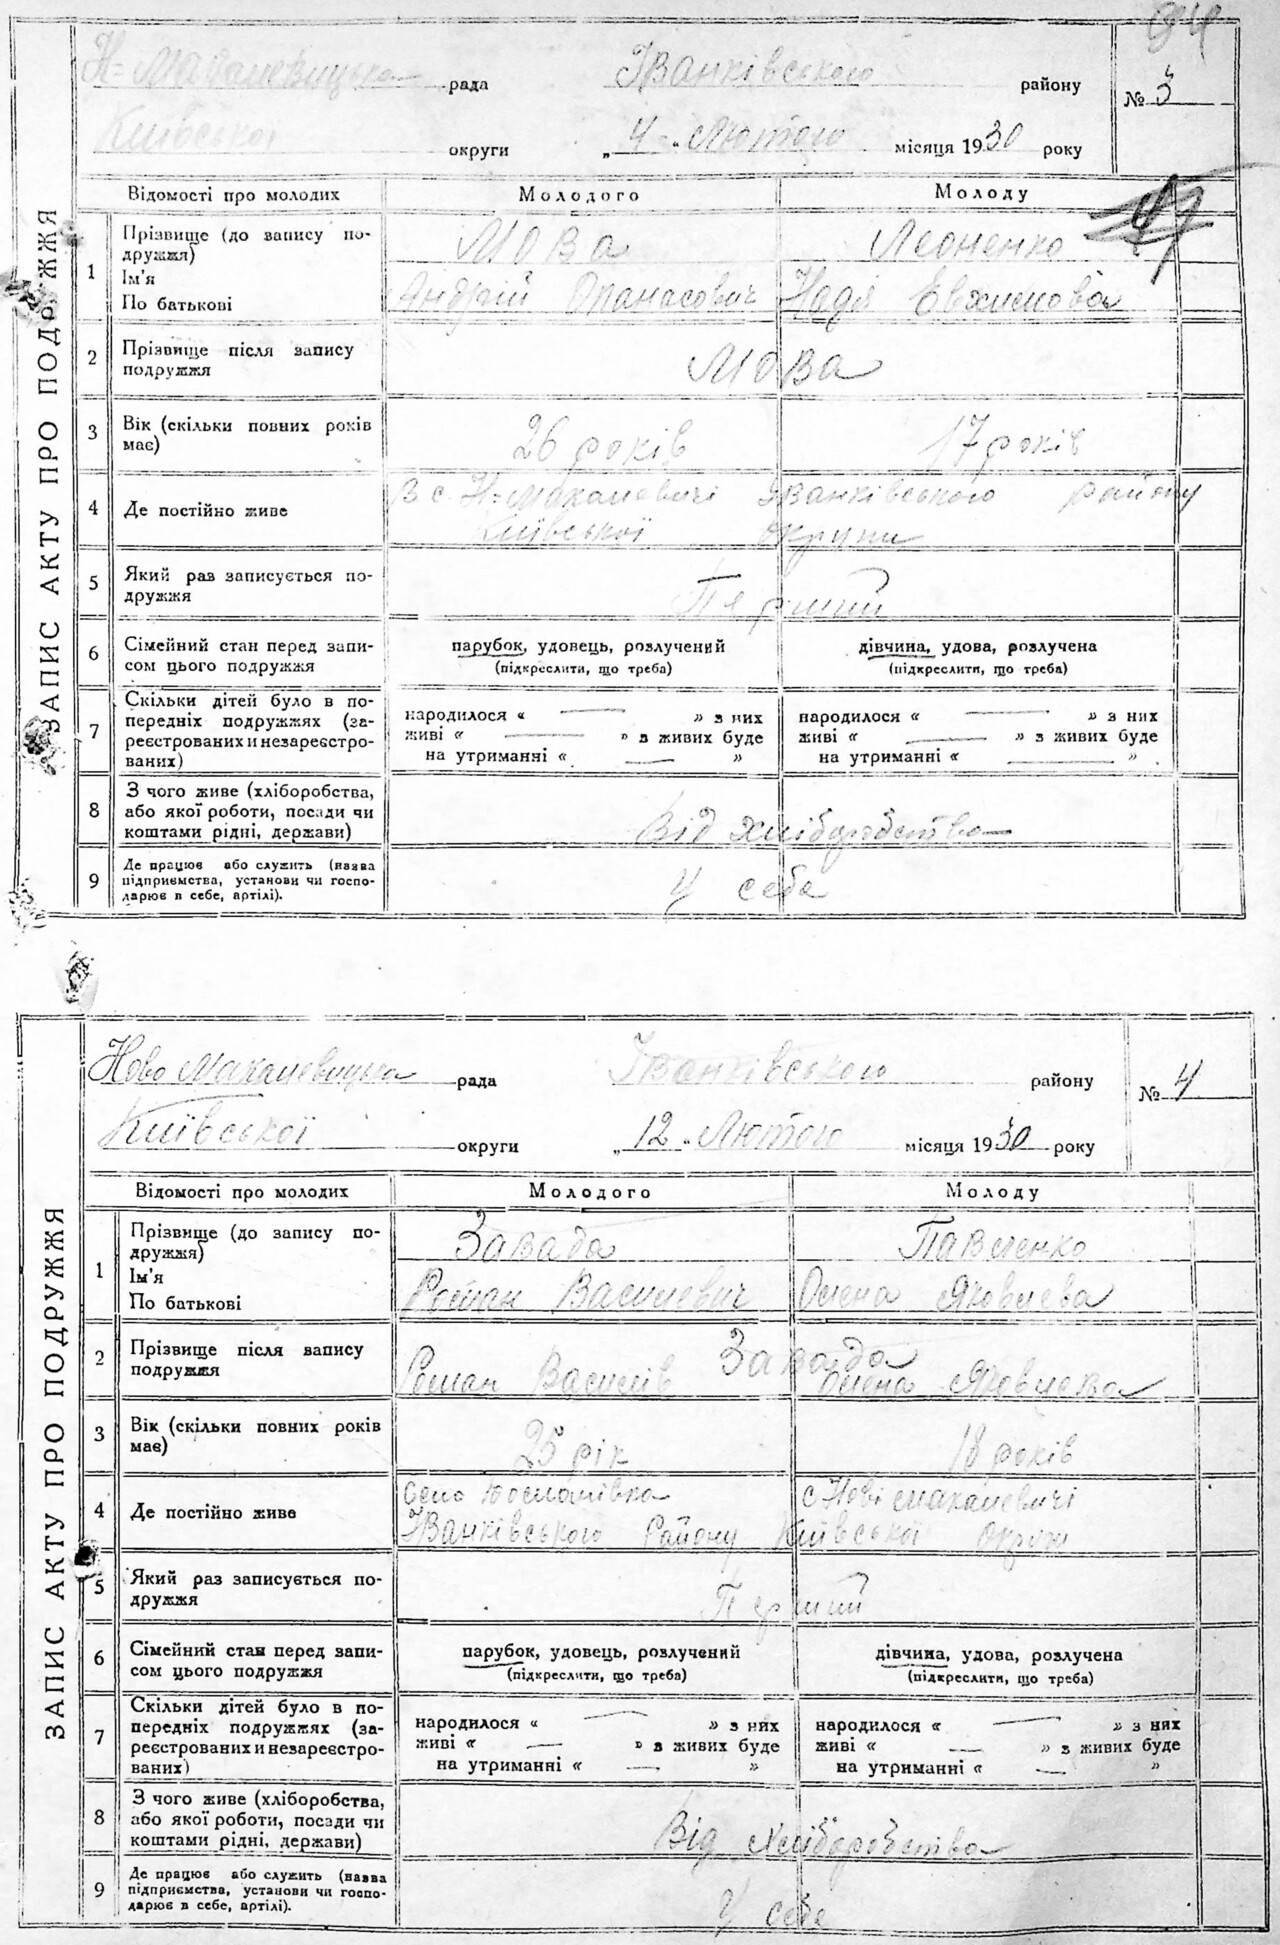 94
Н=Макалевицька рада Іванківського району № 3
Київської округи „4" Лютого місяця 1930 року
ЗАПИС АКТУ ПРО ПОДРУЖЖЯ
Відомості про молодих Молодого Молоду
1 Прізвище (до запису по- Мова Леоненко
дружжя)
Ім'я Андрій Опанасович Надя
По батькові
2 Прізвище після запису Мова
подружжя
3 Вік (скільки повних років 26 років 17 років
має)
4 Де постійно живе В с. Н=Макалевичі Іванківського району
Київської округи
5 Який раз записується по- Перший
дружжя
6 Сімейний стан перед запи- парубок, удовець, розлучений дівчина, удова, розлучена
сом цього подружжя (підкреслити, що треба) (підкреслити, що треба)
7 Скільки дітей було в по- народилося « — » з них народилося « — » з них
передніх подружжях (за- живі « — » з живих буде живі « — » з живих буде
реєстрованих и незареєстро- на утриманні « — » на утриманні « — »
ваних)
8 З чого живе (хліборобства, Від хліборобства
або якої роботи, посади чи
коштами рідні, держави)
9 Де працює або служить (назва У себе
підприємства, установи чи госпо-
дарює в себе, артілі).
Ново Макалевицька рада Іванківського району № 4
Київської округи „12" Лютого місяця 1930 року
ЗАПИС АКТУ ПРО ПОДРУЖЖЯ
Відомості про молодих Молодого Молоду
1 Прізвище (до запису по- Завада Павленко
дружжя)
Ім'я Роман Василевич Олена Яковлева
По батькові
2 Прізвище після запису Завада
подружжя Роман Василів Олена Яковлева
3 Вік (скільки повних років 25 рік 18 років
має)
4 Де постійно живе Село с Нові Макалевичі
Іванківського Району Київської Округи
5 Який раз записується по- Перший
дружжя
6 Сімейний стан перед запи- парубок, удовець, розлучений дівчина, удова, розлучена
сом цього подружжя (підкреслити, що треба) (підкреслити, що треба)
7 Скільки дітей було в по- народилося « — » з них народилося « — » з них
передніх подружжях (за- живі « — » з живих буде живі « — » з живих буде
реєстрованих и незареєстро- на утриманні « — » на утриманні « — »
ваних)
8 З чого живе (хліборобства, Від хліборобства
або якої роботи, посади чи
коштами рідні, держави)
9 Де працює або служить (назва У себе
підприємства, установи чи госпо-
дарює в себе, артілі).